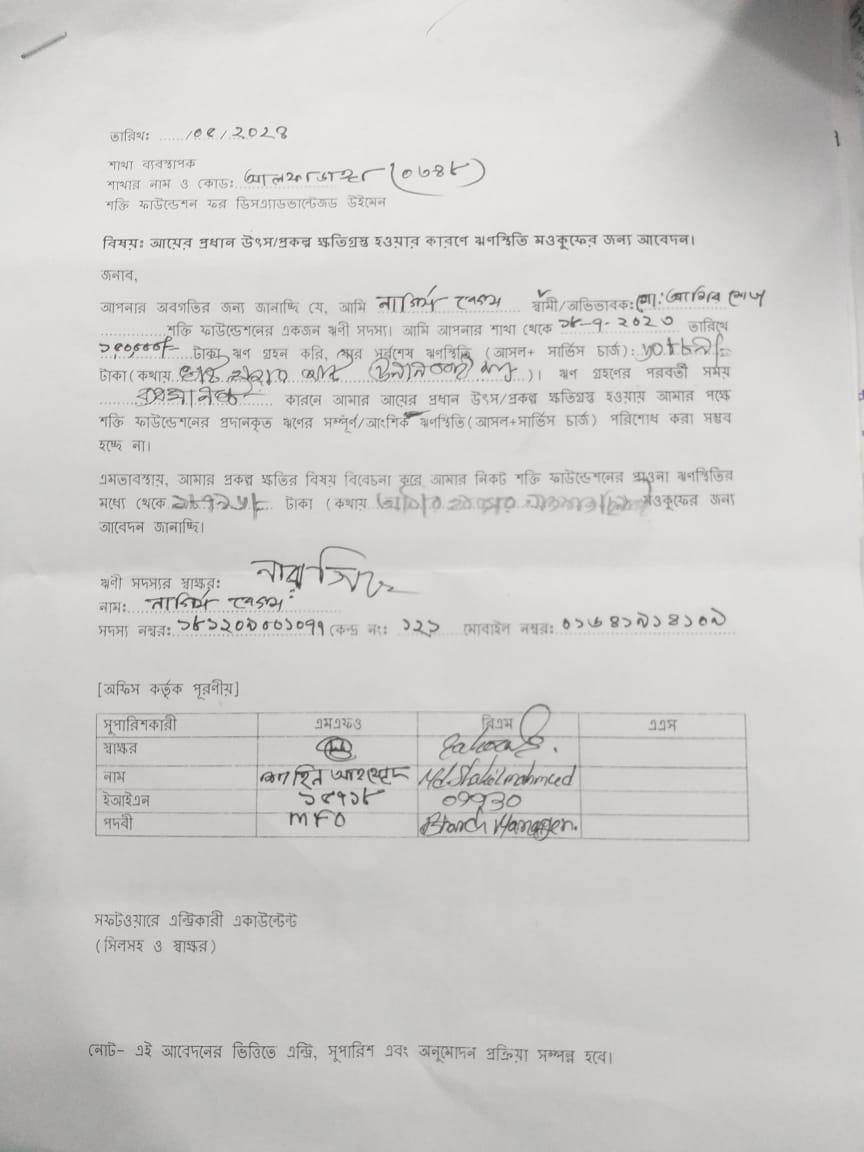 তারিখঃ ....../০৫/2028
শাখা ব্যবস্থাপক
শাখার নাম ও কোড: আলফাডাঙ্গা (০৬৪৮)
শক্তি ফাউন্ডেশন ফর ডিসএ্যাডভান্টেজড উইমেন
বিষয়ঃ আয়ের প্রধান উৎস/প্রকল্প ক্ষতিগ্রস্ত হওয়ার কারণে ঋণস্থিতি মওকুফের জন্য আবেদন।
জনাব,
আপনার অবগতির জন্য জানাচ্ছি যে, আমি নার্গিস বেগম স্বামী/অভিভাবক: মো:
শক্তি ফাউন্ডেশনের একজন ঋণী সদস্য। আমি আপনার শাখা থেকে তারিখে
টাকা ঋণ গ্রহন করি, যার সর্বশেষ ঋণস্থিতি (আসল+ সার্ভিস চার্জ):
টাকা (কথায় )। ঋণ গ্রহণের পরবর্তী সময়
কারনে আমার আয়ের প্রধান উৎস/প্রকল্প ক্ষতিগ্রস্ত হওয়ায় আমার পক্ষে
শক্তি ফাউন্ডেশনের প্রদানকৃত ঋণের সম্পূর্ণ/আংশিক ঋণস্থিতি (আসল+সার্ভিস চার্জ) পরিশোধ করা সম্ভব
হচ্ছে না।
এমতাবস্থায়, আমার প্রকল্প ক্ষতির বিষয় বিবেচনা করে আমার নিকট শক্তি ফাউন্ডেশনের পাওনা ঋণস্থিতির
মধ্যে থেকে টাকা (কথায় মওকুফের জন্য
আবেদন জানাচ্ছি।
ঋণী সদস্যর স্বাক্ষর:
নাম: নার্গিস বেগম
সদস্য নম্বর: কেন্দ্র নং: ১২১ মোবাইল নম্বর: ০১৬৪১৯১৪১০৯
[অফিস কর্তৃক পূরণীয়]
সুপারিশকারী এমএফও বিএম এএম
স্বাক্ষর
নাম Md. Shakil mahmed
ইআইএন 09930
পদবী MFO Branch Manager.
সফটওয়ারে এন্ট্রিকারী একাউন্টেন্ট
(সিলসহ ও স্বাক্ষর)
নোট- এই আবেদনের ভিত্তিতে এন্ট্রি, সুপারিশ এবং অনুমোদন প্রক্রিয়া সম্পন্ন হবে।